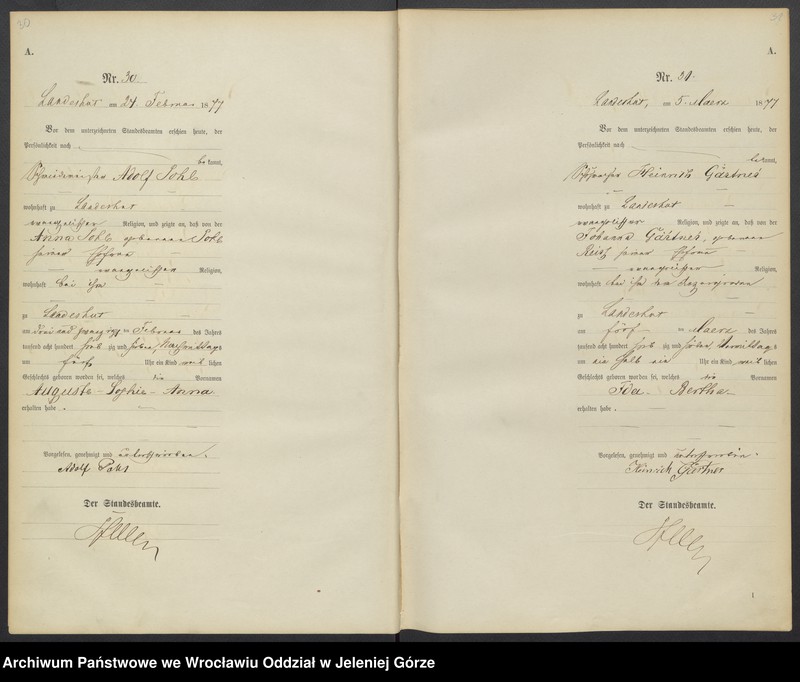 30
A.
Nr. 30
Landeshut am 24 Februar 1877
Vor dem unterzeichneten Standesbeamten erschien heute, der
Persönlichkeit nach
bekannt,
Adolf Pohl
wohnhaft zu Landeshut
evangelischer Religion, und zeigte an, daß von der
Anna Pohl geborenen Pohl
seiner Ehefrau
evangelischer Religion,
wohnhaft bei ihm
zu Landeshut
am drei und zwanzigsten Februar des Jahres
tausend acht hundert siebzig und sieben, Nachmittags
um fünf Uhr ein Kind weiblichen
Geschlechts geboren worden sei, welches die Vornamen
Auguste Sophie Anna
erhalten habe.
Vorgelesen, genehmigt und unterschrieben.
Adolf Pohl
Der Standesbeamte.
31
A.
Nr. 31.
Landeshut, am 5. Maerz 1877
Vor dem unterzeichneten Standesbeamten erschien heute, der
Persönlichkeit nach
bekannt,
Heinrich Gärtner
wohnhaft zu Landeshut
evangelischer Religion, und zeigte an, daß von der
Johanna Gärtner, geborenen
seiner Ehefrau
evangelischer Religion,
wohnhaft bei
zu Landeshut
am Maerz des Jahres
tausend acht hundert siebzig und sieben, Vormittags
um ein halb ein Uhr ein Kind weiblichen
Geschlechts geboren worden sei, welches die Vornamen
Ida Bertha
erhalten habe.
Vorgelesen, genehmigt und unterschrieben.
Heinrich Gärtner
Der Standesbeamte.
1
Archiwum Państwowe we Wrocławiu Oddział w Jeleniej Górze